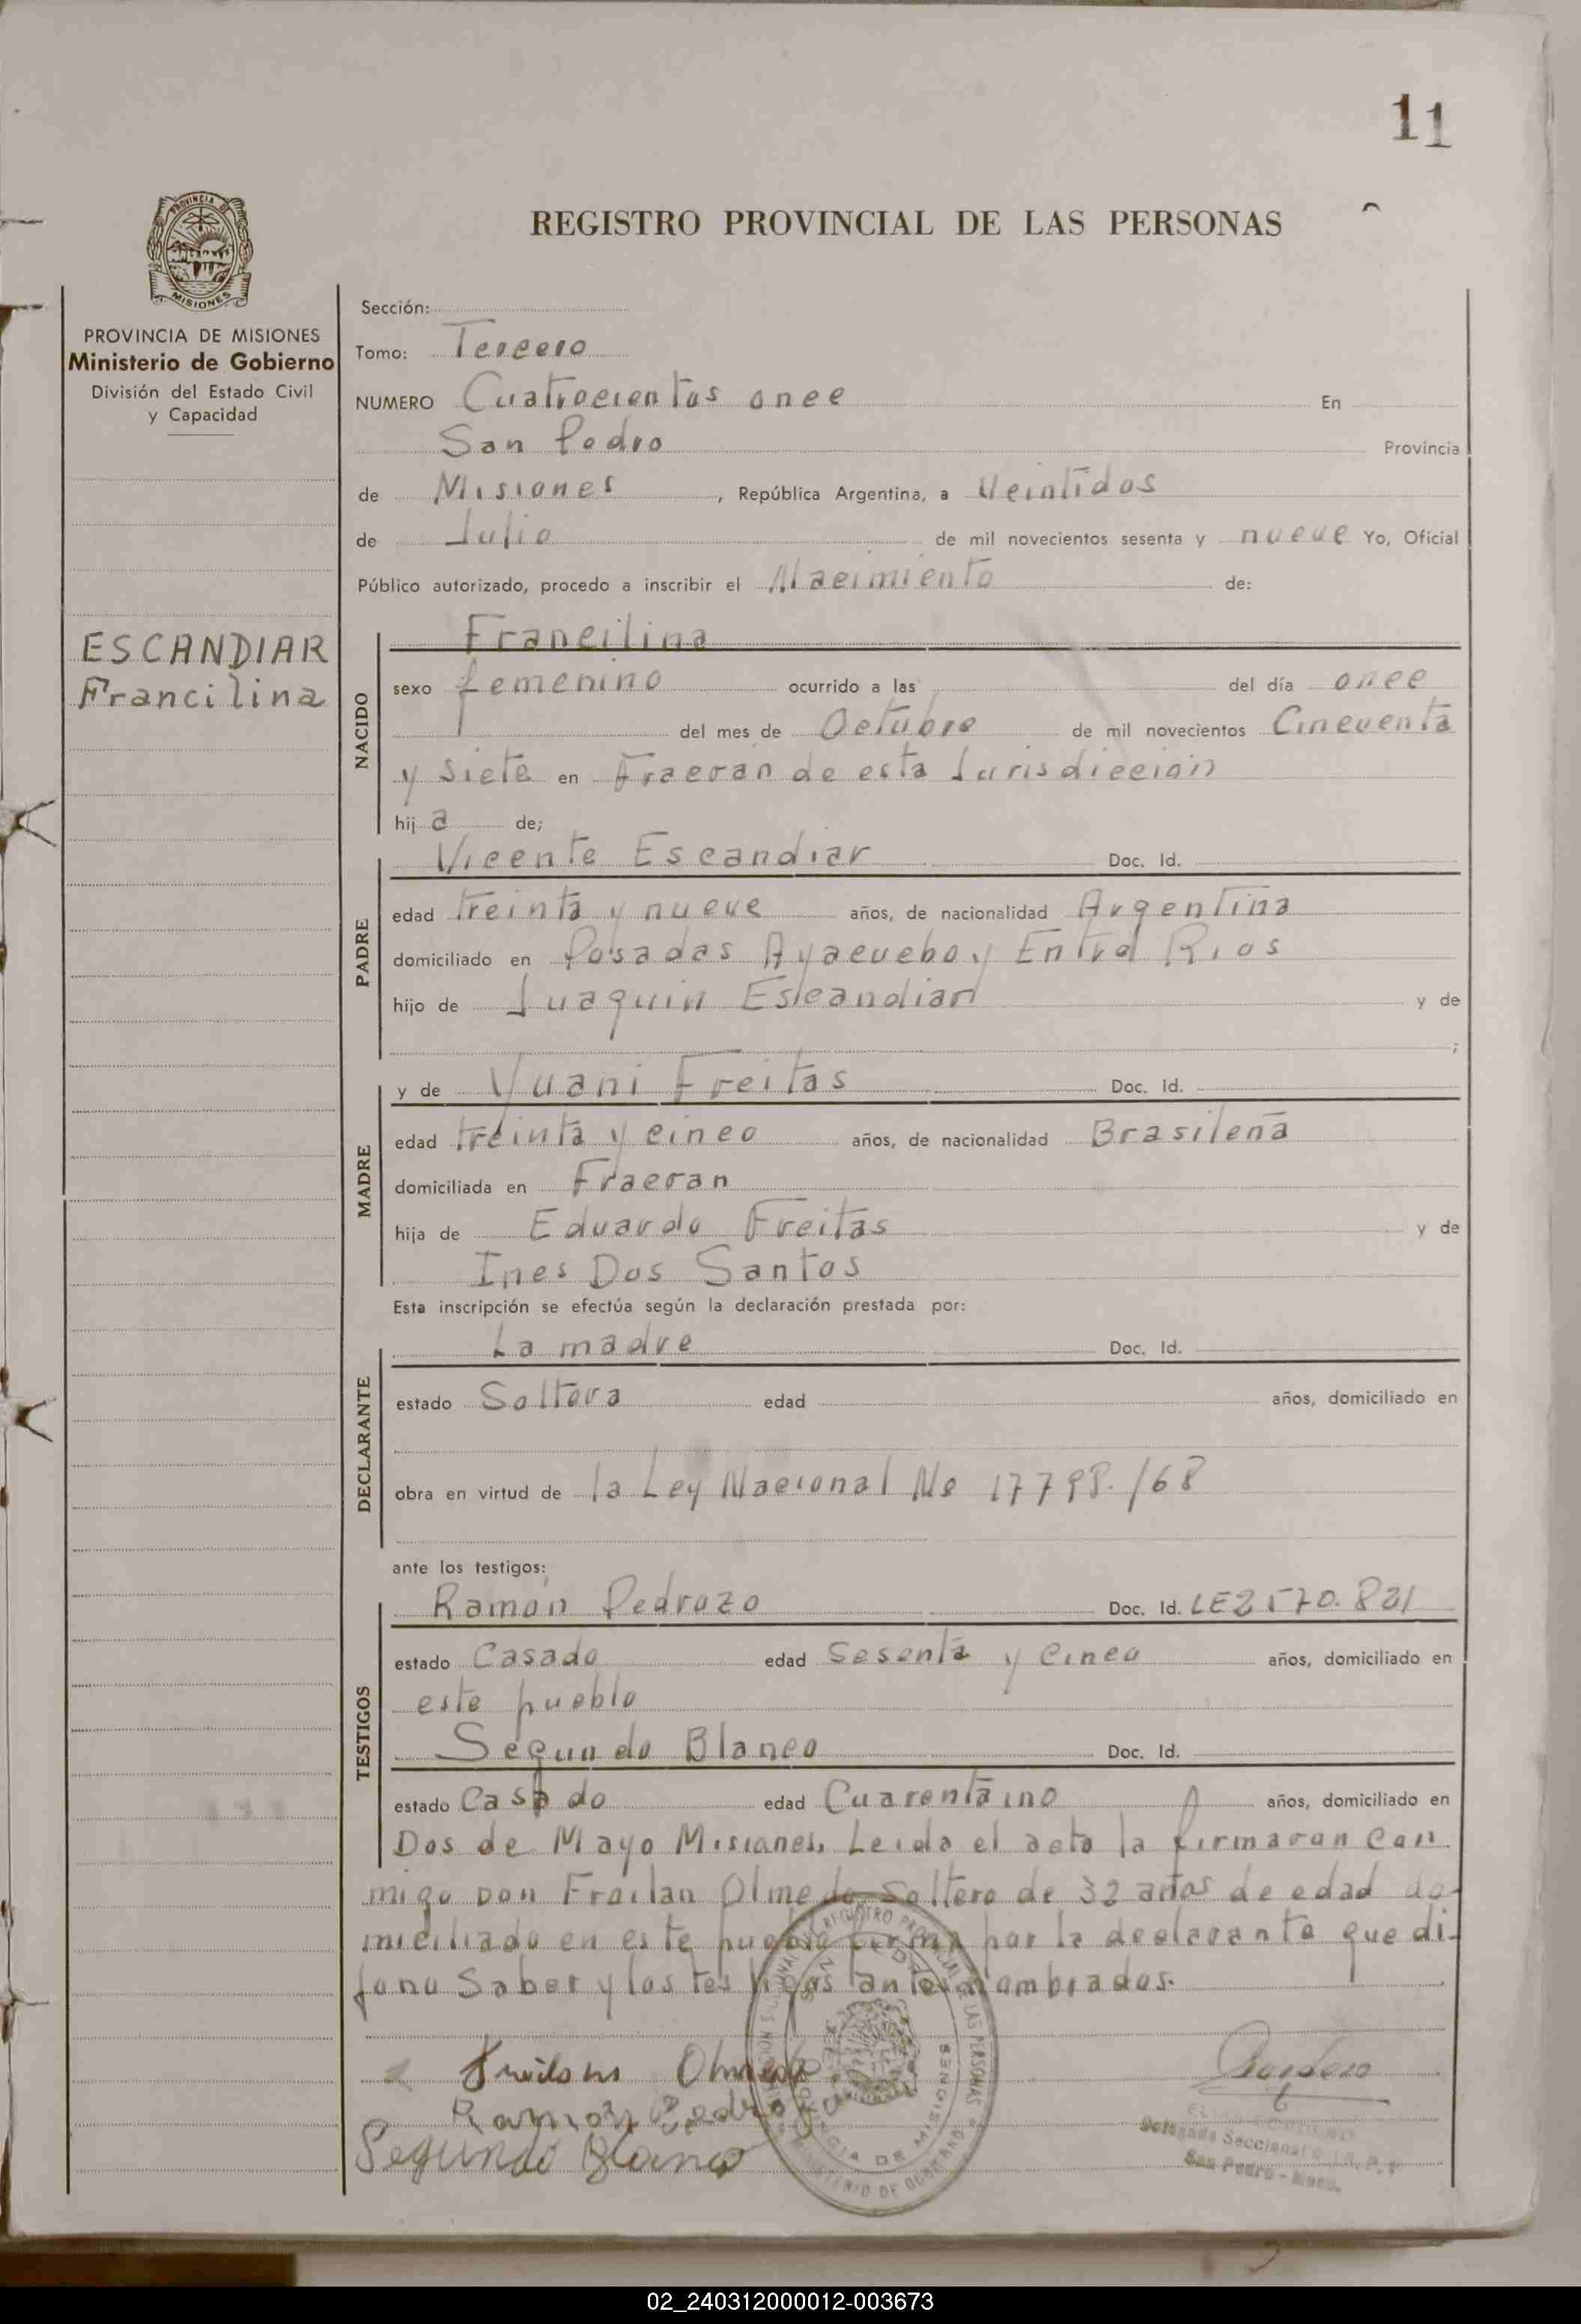 11
REGISTRO PROVINCIAL DE LAS PERSONAS
PROVINCIA DE
MISIONES
PROVINCIA DE MISIONES
Ministerio de Gobierno
División del Estado Civil
y Capacidad
ESCANDIAR
Francilina
Sección:
Tomo: Tercero
NUMERO Cuatrocientos once En
San Pedro Provincia
de Misiones, República Argentina, a Veintidos
de Julio de mil novecientos sesenta y nueve Yo, Oficial
Público autorizado, procedo a inscribir el Nacimiento de:
NACIDO
Francilina
sexo femenino ocurrido a las del día once
del mes de Octubre de mil novecientos Cincuenta
y siete en Fracran de esta Jurisdiccion
hij a de;
PADRE
Vicente Escandiar Doc. Id.
edad treinta y nueve años, de nacionalidad Argentina
domiciliado en Posadas Ayacucho y Entre Rios
hijo de Juaquin Escandiar y de
;
MADRE
y de Yuani Freitas Doc. Id.
edad treinta y cinco años, de nacionalidad Brasileña
domiciliada en Fracran
hija de Eduardo Freitas y de
Ines Dos Santos
Esta inscripción se efectúa según la declaración prestada por:
DECLARANTE
La madre Doc. Id.
estado Soltera edad años, domiciliado en
obra en virtud de la Ley Nacional No 17798./68
ante los testigos:
TESTIGOS
Ramón Pedrozo Doc. Id. LE2570.821
estado Casado edad Sesenta y Cinco años, domiciliado en
este pueblo
Segundo Blanco Doc. Id.
estado Casado edad Cuarentaino años, domiciliado en
Dos de Mayo Misiones. Leida el acta la firmaran con
migo Don Froilan Olmedo Soltero de 32 años de edad do-
miciliado en este pueblo firma por la declarante que di-
jono Saber y los testigos antes nombrados.
Froilan Olmedo
Ramon Pedrozo
Segundo Blanco
Cordero
Delegado Seccional
San Pedro - Mnes.
PROVINCIA DE MISIONES
MINISTERIO DE GOBIERNO
02_240312000012-003673